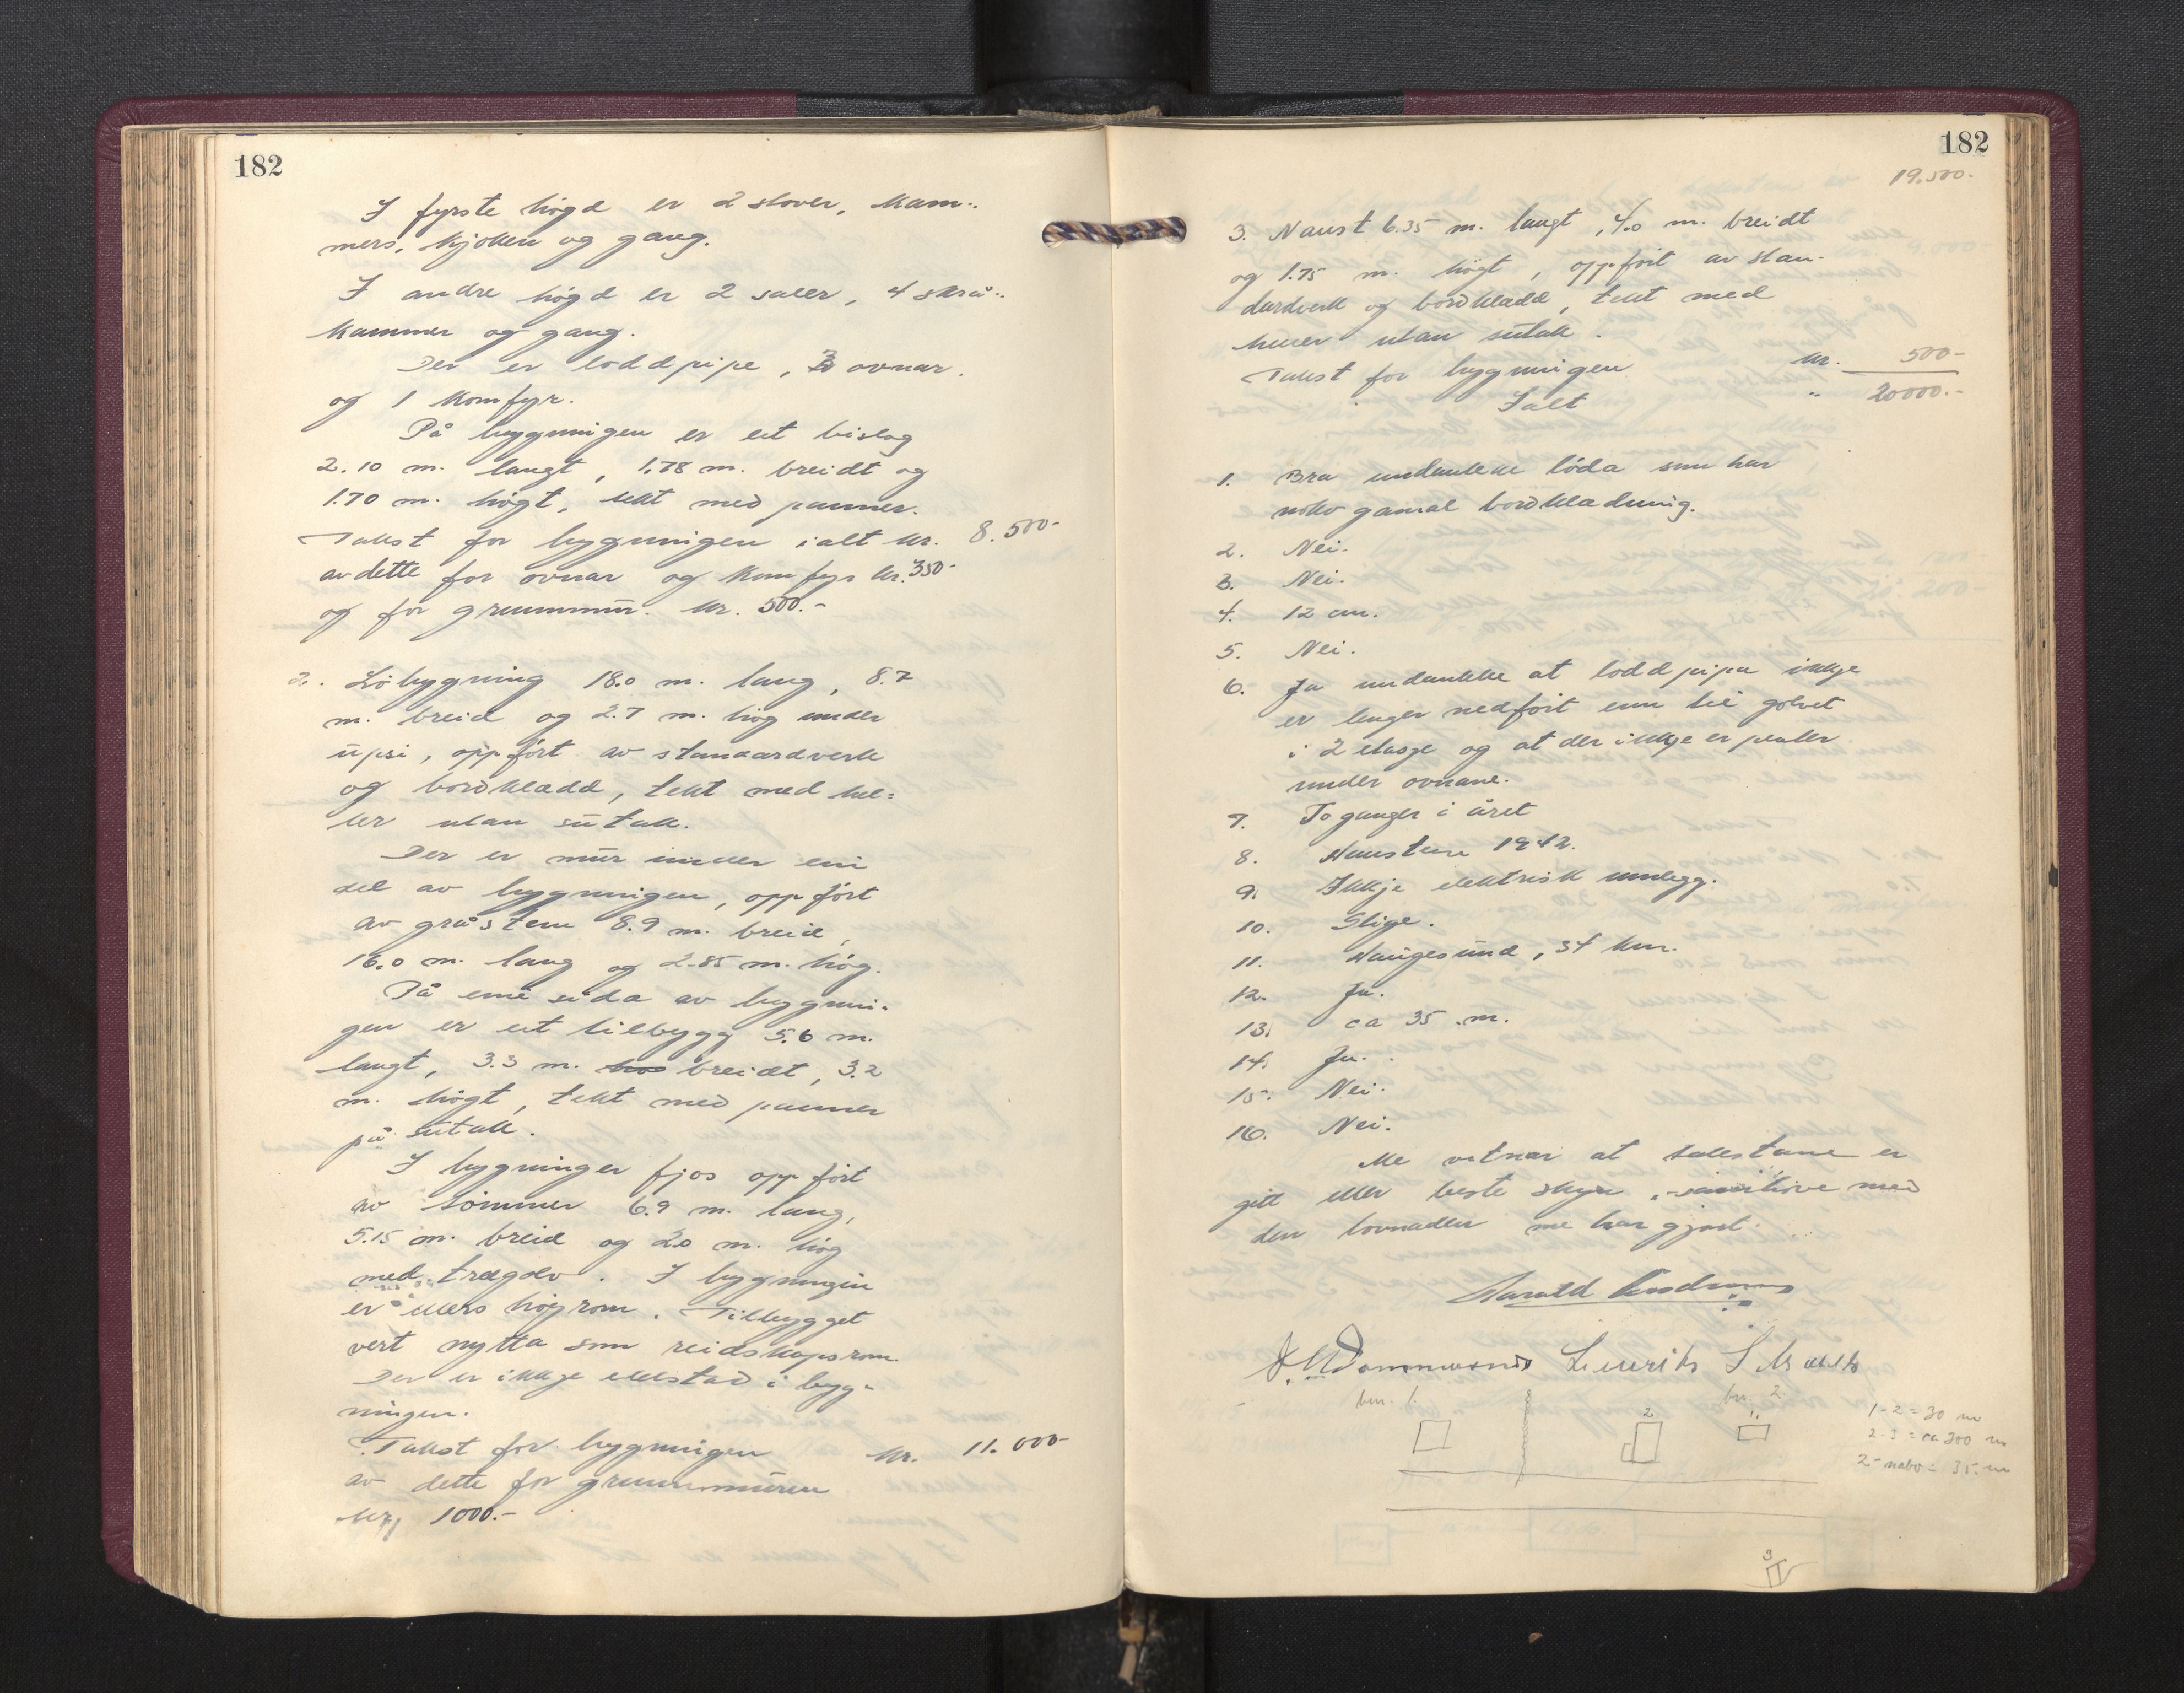 182
I fyrste högd er 2 stover, kam-
mers, kjöken og gang.
I andre högd er 2 saler, 4 skrå-
kammer og gang.
Der er loddpipe, 3 ovnar
og 1 komfyr.
På bygningen er eit bislag
2.10 m. langt, 1.78 m. breidt og
1.70 m. högt, tekt med panner.
Takst for bygningen ialt kr. 8.500-
av dette for ovnar og komfyr kr. 350-
og for grunnmur. kr. 500.-
2. Löbygning 18.0 m. lang, 8.7
m. breid og 2.7 m. hög under
upsi, oppfört av standardverk
og bordkledd, tekt med hel-
ler utan sutak.
Der er mur under ein
del av bygningen, oppfört
av gråstein 8.9 m. breid,
16.0 m. lang og 2.85 m. hög.
På eine sida av bygnin-
gen er eit tilbygg 5.6 m.
langt, 3.3 m. breidt, 3.2
m. högt, tekt med panner
på sutak.
I bygningen fjos oppfört
av tömmer 6.9 m. lang,
5.15 m. breid og 2.0 m. hög
med tregolv. I bygningen
er ellers högrom. Tilbygget
vert nytta som reidskapsrom
Der er ikkje eldstad i byg-
ningen.
Takst for bygningen kr. 11.000-
av dette for grunnmuren
kr. 1000.-
182
19.500.-
3. Naust 6.35 m. langt, 4.0 m. breidt
og 1.75 m. högt, oppfört av stan-
dardverk og bordkledd, tekt med
heller utan sutak.
Takst for bygningen kr. 500-
Ialt " 20000.-
1. Bra undanteke löda som har
noko gamal bordkledning.
2. Nei.
3. Nei.
4. 12 cm.
5. Nei.
6. Ja undanteke at loddpipa ikkje
er lenger nedfört enn til golvet
i 2 etasge og at der ikkje er plater
under ovnane.
7. To ganger i året
8. Hausten 1942.
9. Ikkje elektrisk innlegg.
10. Stige.
11. Haugesund, 34 km.
12. Ja.
13. ca 35 m.
14. Ja.
15. Nei.
16. Nei.
Me vitnar at takstane er
gitt etter beste skyn, i samhöve med
den lovnaden me har gjort.
Harald
bnr. 1. bnr. 2.
2 1.
1-2 = 30 m
2-3 = ca 300 m
2- nabo = 35 m
3